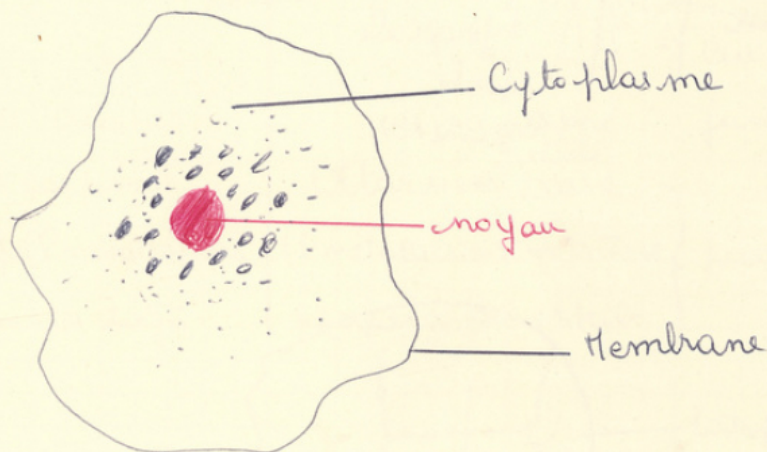 Cytoplasme
noyau
Membrane